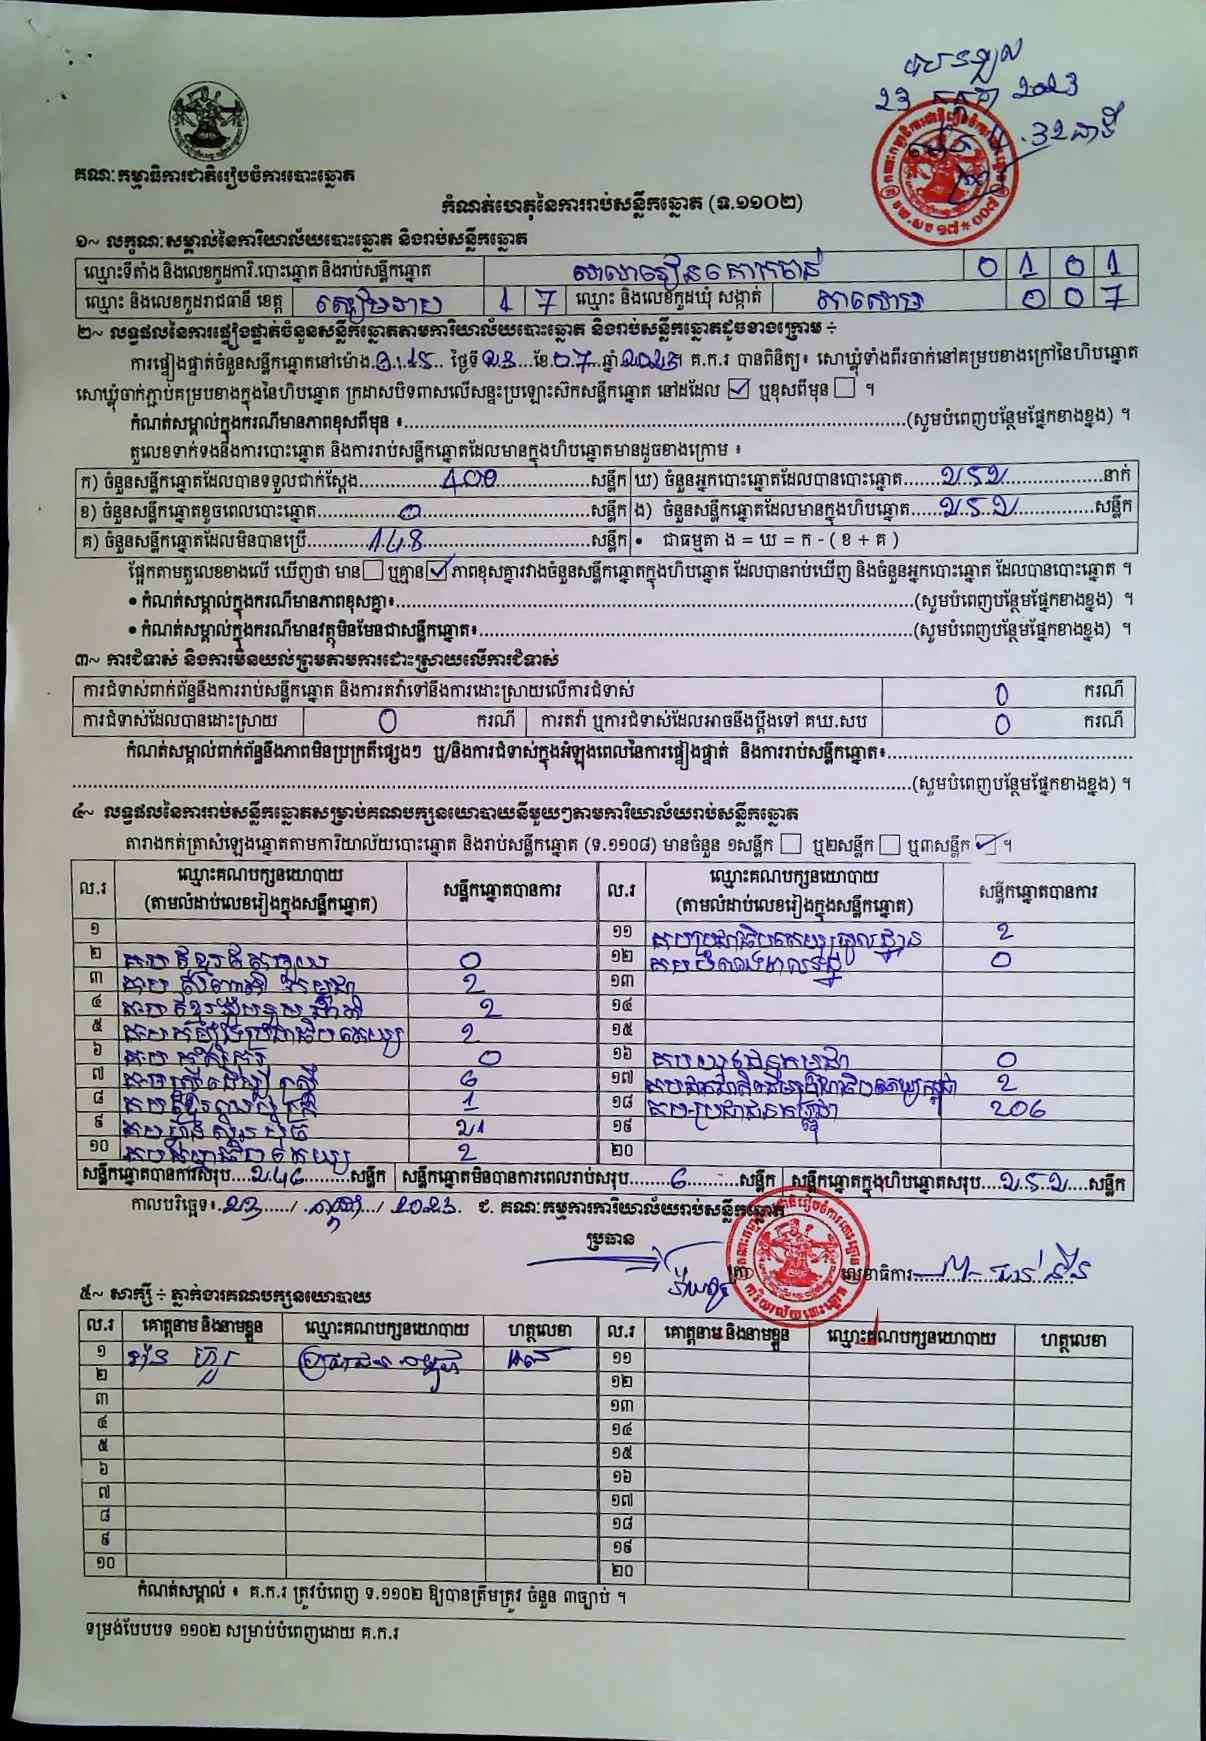 បានចូល
23 កក្កដា 2023
គណៈកម្មាធិការជាតិរៀបចំការបោះឆ្នោត
កំណត់ហេតុនៃការរាប់សន្លឹកឆ្នោត (ទ.១១០២)
១~ លក្ខណៈសម្គាល់នៃការិយាល័យបោះឆ្នោត និងរាប់សន្លឹកឆ្នោត
ឈ្មោះទីតាំង និងលេខកូដការិ.បោះឆ្នោត និងរាប់សន្លឹកឆ្នោត សាលារៀនគោកចាន់ 0 1 0 1
ឈ្មោះ និងលេខកូដរាជធានី ខេត្ត សៀមរាប 1 7 ឈ្មោះ និងលេខកូដឃុំ សង្កាត់ តាសោម 0 0 7
២~ លទ្ធផលនៃការផ្ទៀងផ្ទាត់ចំនួនសន្លឹកឆ្នោតតាមការិយាល័យបោះឆ្នោត និងរាប់សន្លឹកឆ្នោតដូចខាងក្រោម ÷
ការផ្ទៀងផ្ទាត់ចំនួនសន្លឹកឆ្នោតនៅម៉ោង 3:15 ថ្ងៃទី 23 ខែ 07 ឆ្នាំ 2023។ គ.ក.រ បានពិនិត្យ៖ សោឃ្លុំទាំងពីរចាក់នៅគម្របខាងក្រៅនៃហិបឆ្នោត
សោឃ្លុំចាក់ភ្ជាប់គម្របខាងក្នុងនៃហិបឆ្នោត ក្រដាសបិទពាសលើសន្ទះប្រឡោះស៊កសន្លឹកឆ្នោត នៅដដែល ☑ ឬខុសពីមុន ☐ ។
កំណត់សម្គាល់ក្នុងករណីមានភាពខុសពីមុន ៖..........(សូមបំពេញបន្ថែមផ្នែកខាងខ្នង) ។
តួលេខទាក់ទងនឹងការបោះឆ្នោត និងការរាប់សន្លឹកឆ្នោតដែលមានក្នុងហិបឆ្នោតមានដូចខាងក្រោម ៖
ក) ចំនួនសន្លឹកឆ្នោតដែលបានទទួលជាក់ស្តែង 400 សន្លឹក ឃ) ចំនួនអ្នកបោះឆ្នោតដែលបានបោះឆ្នោត 252 នាក់
ខ) ចំនួនសន្លឹកឆ្នោតខូចពេលបោះឆ្នោត 0 សន្លឹក ង) ចំនួនសន្លឹកឆ្នោតដែលមានក្នុងហិបឆ្នោត 252 សន្លឹក
គ) ចំនួនសន្លឹកឆ្នោតដែលមិនបានប្រើ 148 សន្លឹក • ជាធម្មតា ង = ឃ = ក - ( ខ + គ )
ផ្អែកតាមតួលេខខាងលើ ឃើញថា មាន ☐ ឬគ្មាន ☑ ភាពខុសគ្នារវាងចំនួនសន្លឹកឆ្នោតក្នុងហិបឆ្នោត ដែលបានរាប់ឃើញ និងចំនួនអ្នកបោះឆ្នោត ដែលបានបោះឆ្នោត ។
• កំណត់សម្គាល់ក្នុងករណីមានភាពខុសគ្នា៖..........(សូមបំពេញបន្ថែមផ្នែកខាងខ្នង) ។
• កំណត់សម្គាល់ក្នុងករណីមានវត្ថុមិនមែនជាសន្លឹកឆ្នោត៖..........(សូមបំពេញបន្ថែមផ្នែកខាងខ្នង) ។
៣~ ការជំទាស់ និងការមិនយល់ព្រមតាមការដោះស្រាយលើការជំទាស់
ការជំទាស់ពាក់ព័ន្ធនឹងការរាប់សន្លឹកឆ្នោត និងការតវ៉ាទៅនឹងការដោះស្រាយលើការជំទាស់ 0 ករណី
ការជំទាស់ដែលបានដោះស្រាយ 0 ករណី ការតវ៉ា ឬការជំទាស់ដែលអាចនឹងប្តឹងទៅ គឃ.សប 0 ករណី
កំណត់សម្គាល់ពាក់ព័ន្ធនឹងភាពមិនប្រក្រតីផ្សេងៗ ឬ/និងការជំទាស់ក្នុងអំឡុងពេលនៃការផ្ទៀងផ្ទាត់ និងការរាប់សន្លឹកឆ្នោត៖..........
..........(សូមបំពេញបន្ថែមផ្នែកខាងខ្នង) ។
៤~ លទ្ធផលនៃការរាប់សន្លឹកឆ្នោតសម្រាប់គណបក្សនយោបាយនីមួយៗតាមការិយាល័យរាប់សន្លឹកឆ្នោត
តារាងកត់ត្រាសំឡេងឆ្នោតតាមការិយាល័យបោះឆ្នោត និងរាប់សន្លឹកឆ្នោត (ទ.១១០៨) មានចំនួន ១សន្លឹក ☐ ឬ២សន្លឹក ☐ ឬ៣សន្លឹក ☑ ។
ល.រ ឈ្មោះគណបក្សនយោបាយ (តាមលំដាប់លេខរៀងក្នុងសន្លឹកឆ្នោត) សន្លឹកឆ្នោតបានការ ល.រ ឈ្មោះគណបក្សនយោបាយ (តាមលំដាប់លេខរៀងក្នុងសន្លឹកឆ្នោត) សន្លឹកឆ្នោតបានការ
១ ១១ គបប្រជាធិបតេយ្យមូលដ្ឋាន 2
២ 0 ១២ 0
៣ 2 ១៣
៤ 2 ១៤
៥ 2 ១៥
៦ 0 ១៦ គបយុវជនកម្ពុជា 0
៧ 6 ១៧ 2
៨ 1 ១៨ គបប្រជាជនកម្ពុជា 206
៩ 21 ១៩
១០ 2 ២០
សន្លឹកឆ្នោតបានការសរុប 246 សន្លឹក សន្លឹកឆ្នោតមិនបានការពេលរាប់សរុប 6 សន្លឹក សន្លឹកឆ្នោតក្នុងហិបឆ្នោតសរុប 252 សន្លឹក
កាលបរិច្ឆេទ៖ 23 / កក្កដា / 2023 ជ. គណៈកម្មការការិយាល័យរាប់សន្លឹកឆ្នោត
ប្រធាន
លេខាធិការ
៥~ សាក្សី ÷ ភ្នាក់ងារគណបក្សនយោបាយ
ល.រ គោត្តនាម និងនាមខ្លួន ឈ្មោះគណបក្សនយោបាយ ហត្ថលេខា ល.រ គោត្តនាម និងនាមខ្លួន ឈ្មោះគណបក្សនយោបាយ ហត្ថលេខា
១ ប្រជាជនកម្ពុជា ១១
២ ១២
៣ ១៣
៤ ១៤
៥ ១៥
៦ ១៦
៧ ១៧
៨ ១៨
៩ ១៩
១០ ២០
កំណត់សម្គាល់ ៖ គ.ក.រ ត្រូវបំពេញ ទ.១១០២ ឱ្យបានត្រឹមត្រូវ ចំនួន ៣ច្បាប់ ។
ទម្រង់បែបបទ ១១០២ សម្រាប់បំពេញដោយ គ.ក.រ